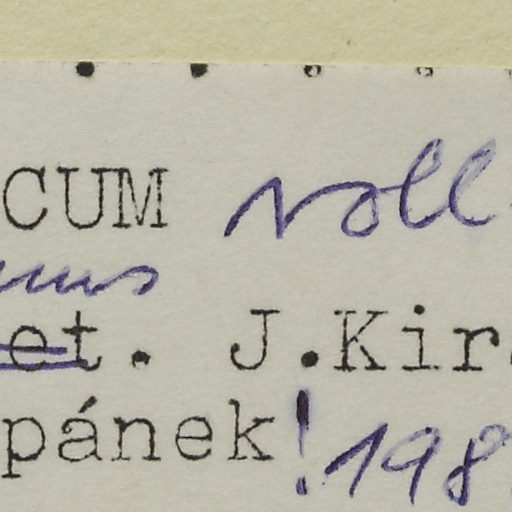 CUM voll
et. J.Kir
pánek! 198